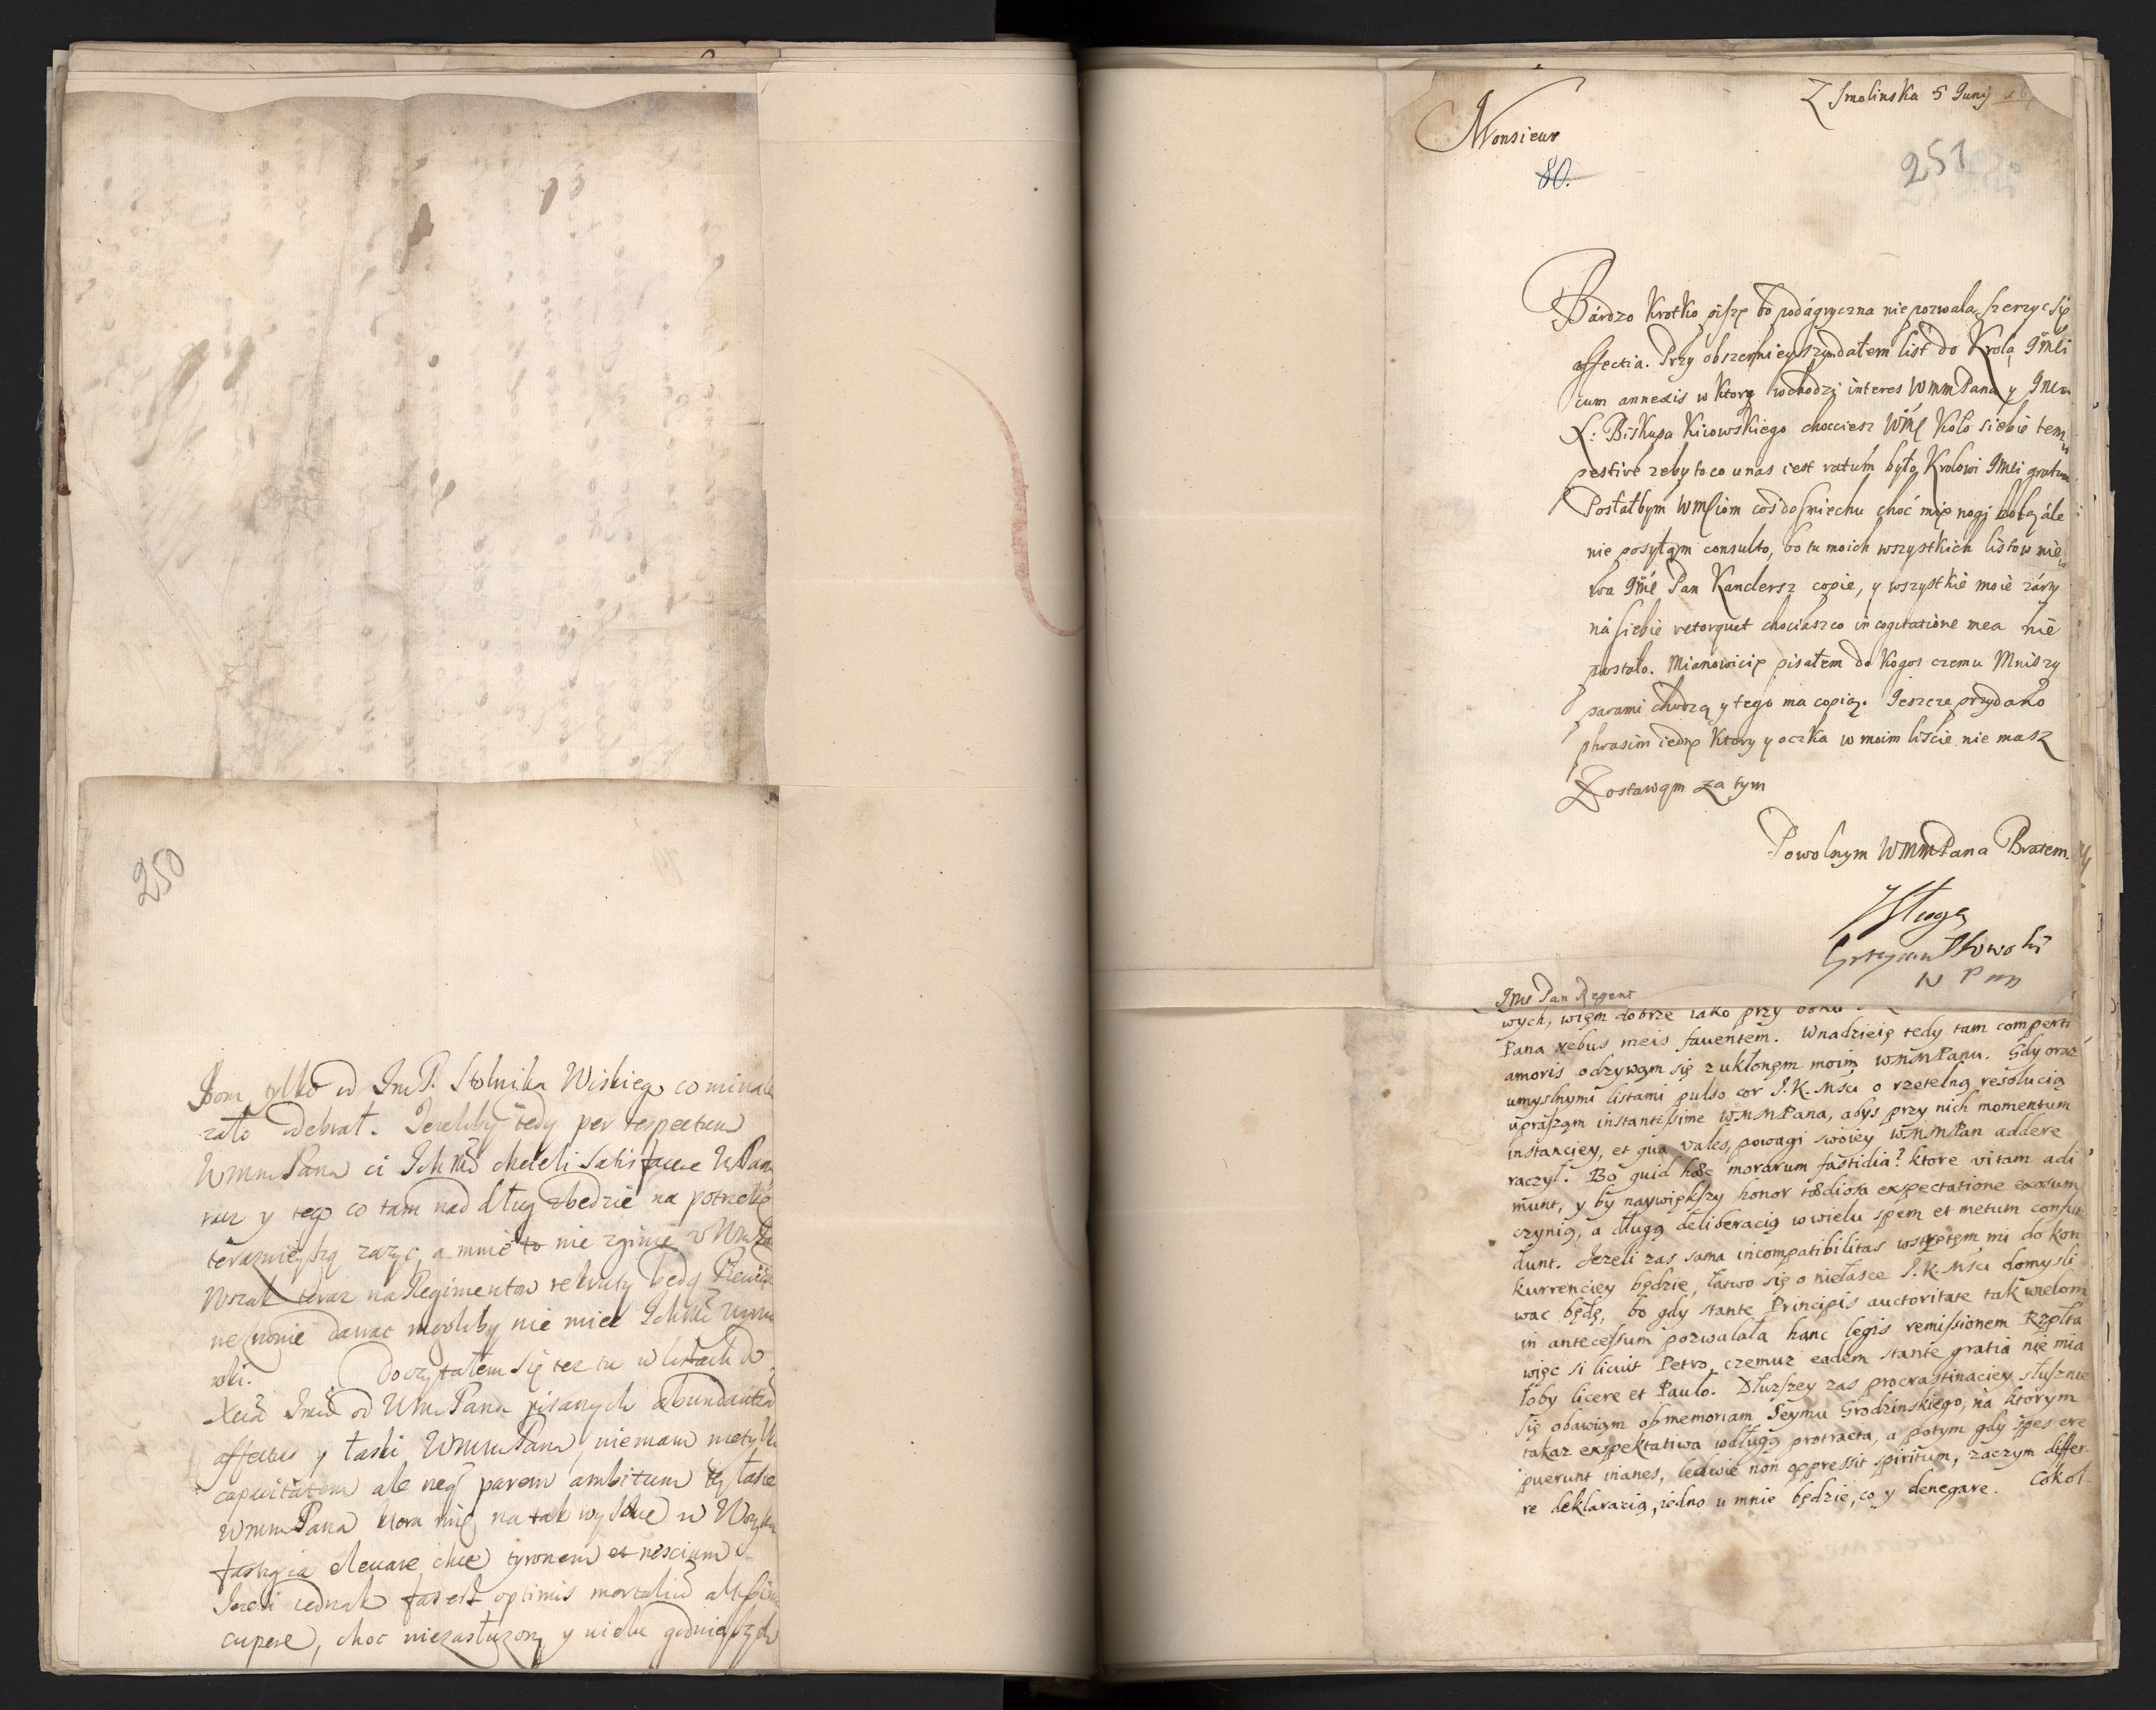 250
tylko od Im P. Stolnika Wiskiego co mi nale
zało odebrał. Jezeliby tedy per respectum
WmmPana ci Ich chcieli satisfacere
y tego co tam nad dług zbędzie na potrzebę
zazyc, a mnie to nie zginie
Wszak teraz na Regimentow rekruty będą
dawac mogliby nie miec
Doczytałem się tez tu w listach do
Xcia Imci od WmPana pisanych abundantia
affectus y łaski WmmPana, niemam nietylko
capacitatem ale neq parem ambitum tey łasce
WmmPana ktora mię na tak wysokie w
fastigia elevare chce tyronem et nescium
Jezeli iednak fas est optimis mortaliu altissima
cupere, choc niezasłuzony y wielu godnieyszych
Z Smolinska 5 Junij
Monsieur
80.
251
Bárdzo krotko piszę bo podágryczna nie pozwala szerzyc się
affectia. Przy obszernieyszym dałem list do Krola JMci
cum annexis w ktory wchodzi interes WmmPana y Jmci
X: Biskupa Kiiowskiego chocciesz WMć koło siebie tem
pestive zeby to co u nas iest ratum było Krolowi JMci gratum
Posłałbym WMciom cos do smiechu choć mię nogi bolą ále
nie posyłąm consulto, bo tu moich wszystkich listow mie
wa JMć Pan Kanclersz copie, y wszystkie moie zárty
ná siebie retorquet chociasz co in cogitatione mea nie
postało. Mianowicie pisałem do kogos czemu Mniszy
parami chodzą y tego ma copią. Jeszcze przydano
phrasim iedę ktory y oczka w moim liscie nie masz
Zostawąm za tym
Powolnym WmmPana Bratem
y Sługą
Jmć Pan Regent
wych, wiem dobrze iako przy
Pana rebus meis faventem. W nadzieię tedy tam comperti
amoris odzywąm się z ukłonęm moim WMMPanu. Gdy oraz
umyslnymi listami pulso cor J.K.Msci o rzetelną resolucią
uprasząm instantissime WMMPana, abys przy nich momentum
instanciey, et qua vales, powagi swoiey WMMPan addere
raczył. Bo quid hæ morarum fastidia? ktore vitam adi
munt, y by naywiększy honor tædiosa expectatione exosum
czynią, a długą deliberacią w wielu spem et metum confun
dunt. Jezeli zas sama incompatibilitas wstrętęm mi do kon
kurrenciey będzie, łatwo się o niełasce J.K.Msci domysli
wac będę, bo gdy stante Principis auctoritate tak wielom
in antecessum pozwalała hanc legis remissionem Rzplta
więc si licuit Petro, czemuz eadem stante gratia nie mia
łoby licere et Paulo. Dłuzszey zas procrastinaciey słusznie
się obawiąm ob memoriam Seymu Grodzinskiego, na ktorym
takaz expektatiwa w długą protracta, a potym gdy spes ere
puerunt inanes, ledwie non oppressit spiritum, zaczym differ-
re deklaracią, iedno u mnie będzie, co y denegare. Cokol-